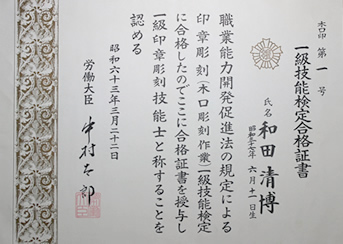 第一号
一級技能検定合格証書
氏名 和田清博
六月十一日生
職業能力開発促進法の規定による
印章彫刻(木口彫刻作業)一級技能検定
に合格したのでここに合格証書を授与し
一級印章彫刻技能士と称することを
認める
昭和六十三年三月二十二日
労働大臣 中村太郎